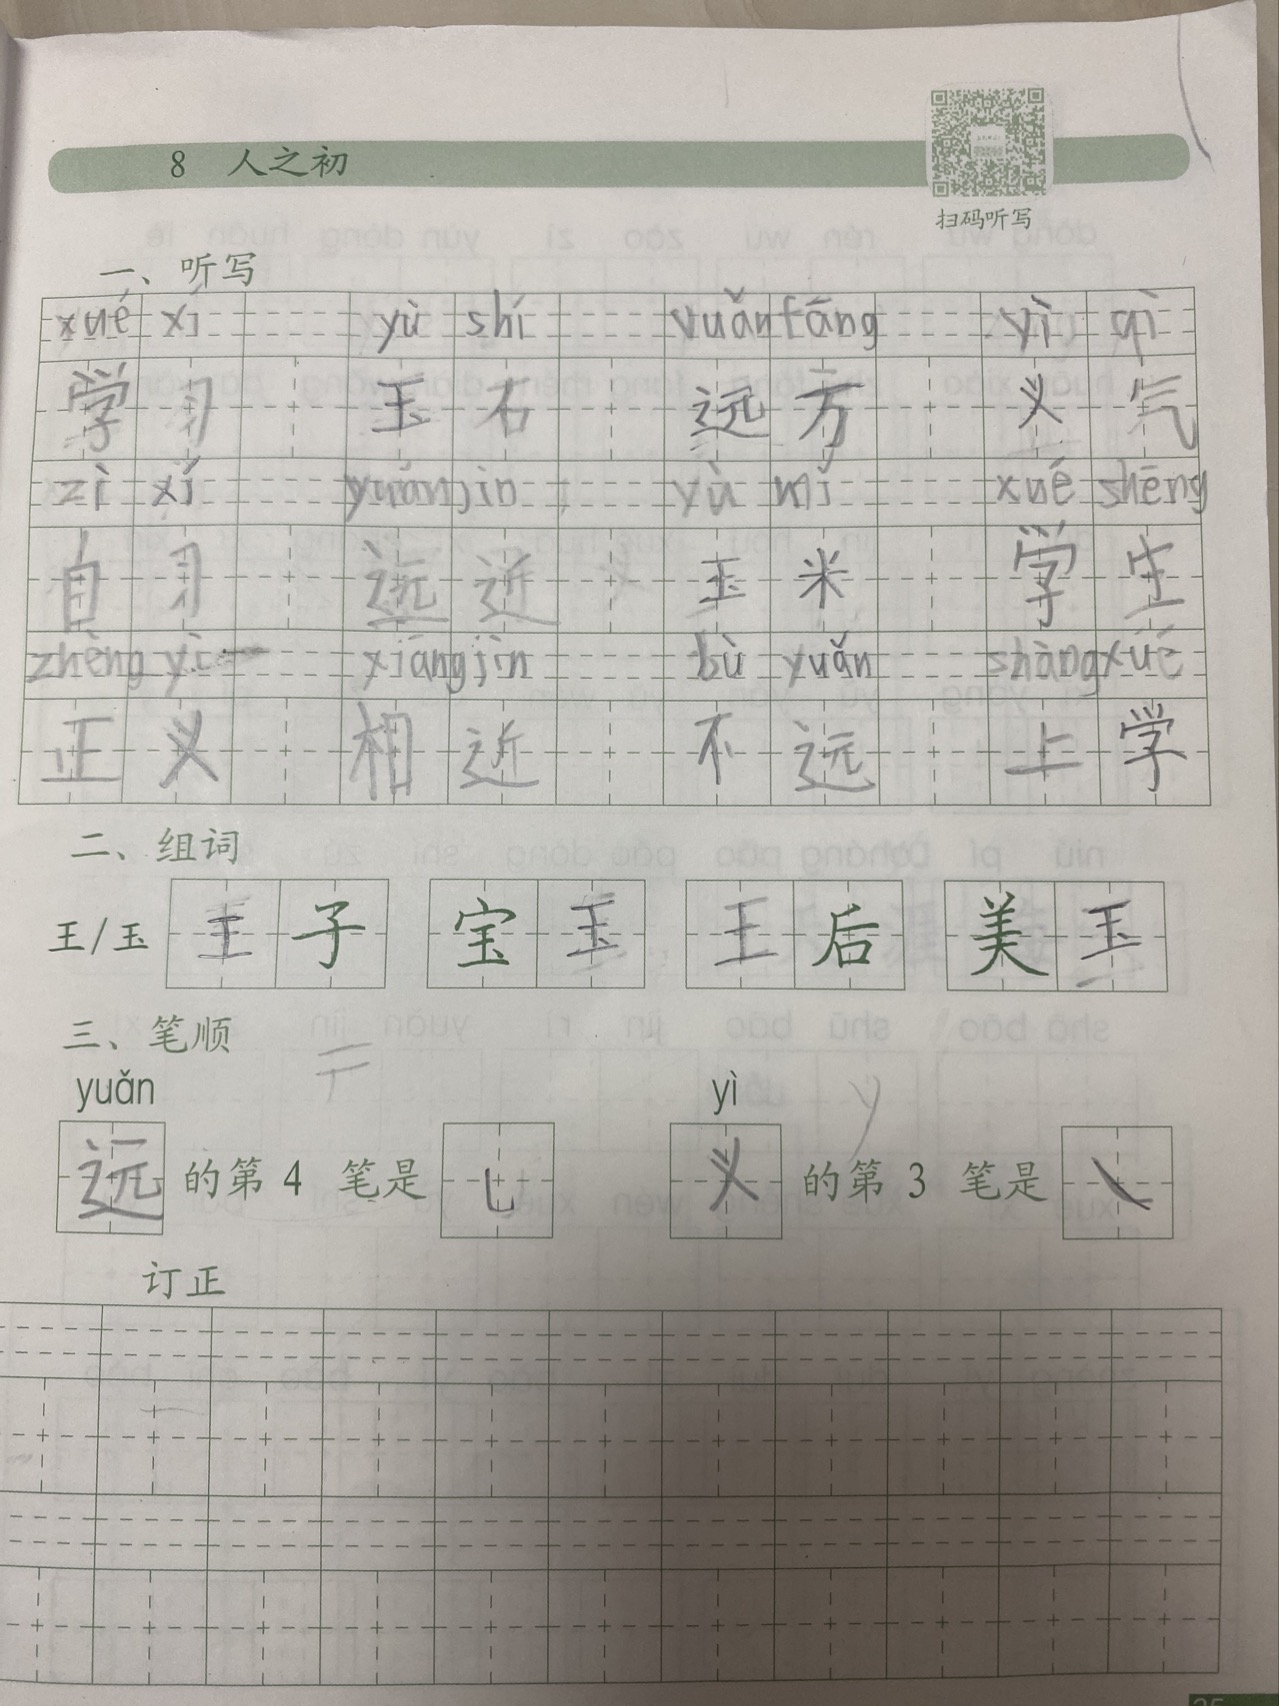 8 人之初
扫码听写
一、听写
xué xí yù shí yuǎn fāng yì qì
学 习 玉 石 远 方 义 气
zì xí yuǎn jìn yù mǐ xué shēng
自 习 远 近 玉 米 学 生
zhèng yì xiāng jìn bù yuǎn shàng xué
正 义 相 近 不 远 上 学
二、组词
王/玉 王子 宝玉 王后 美玉
三、笔顺
yuǎn yì
远 的第 4 笔是 ㇟ 义 的第 3 笔是 ㇏
订正